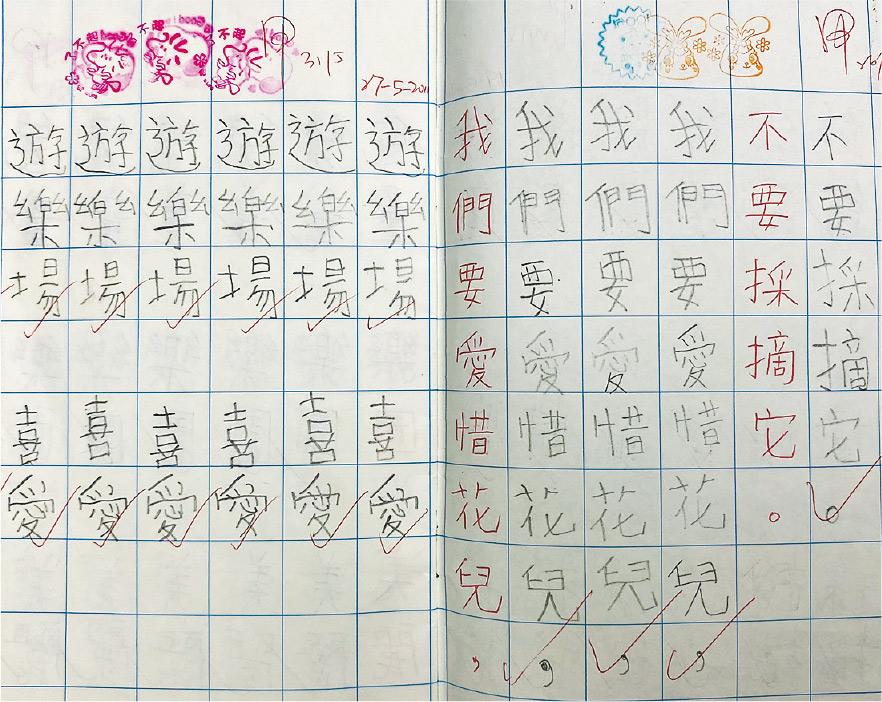 31/5
27-5-201
遊樂場 喜愛
遊樂場 喜愛
遊樂場 喜愛
遊樂場 喜愛
遊樂場 喜愛
遊樂場 喜愛
我們要愛惜花兒，
我們要愛惜花兒，
我們要愛惜花兒，
我們要愛惜花兒，
不要採摘它。
不要採摘它。